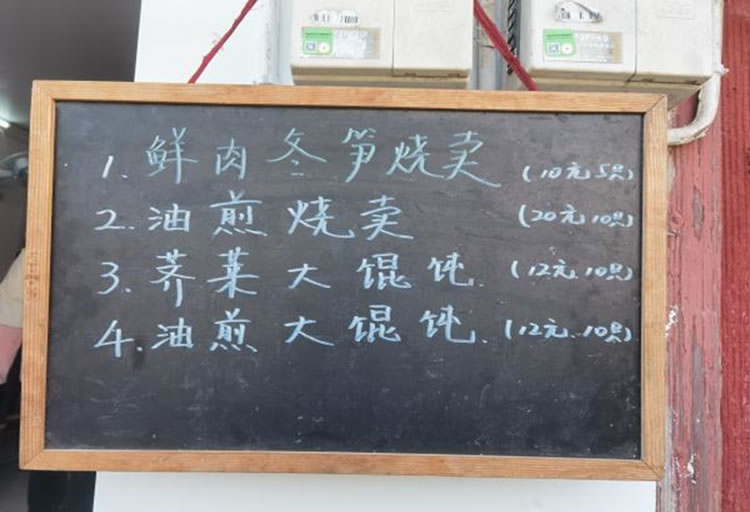 1. 鲜肉冬笋烧卖 (10元5只)
2. 油煎烧卖 (20元10只)
3. 荠菜大馄饨. (12元.10只)
4. 油煎大馄饨. (12元.10只)